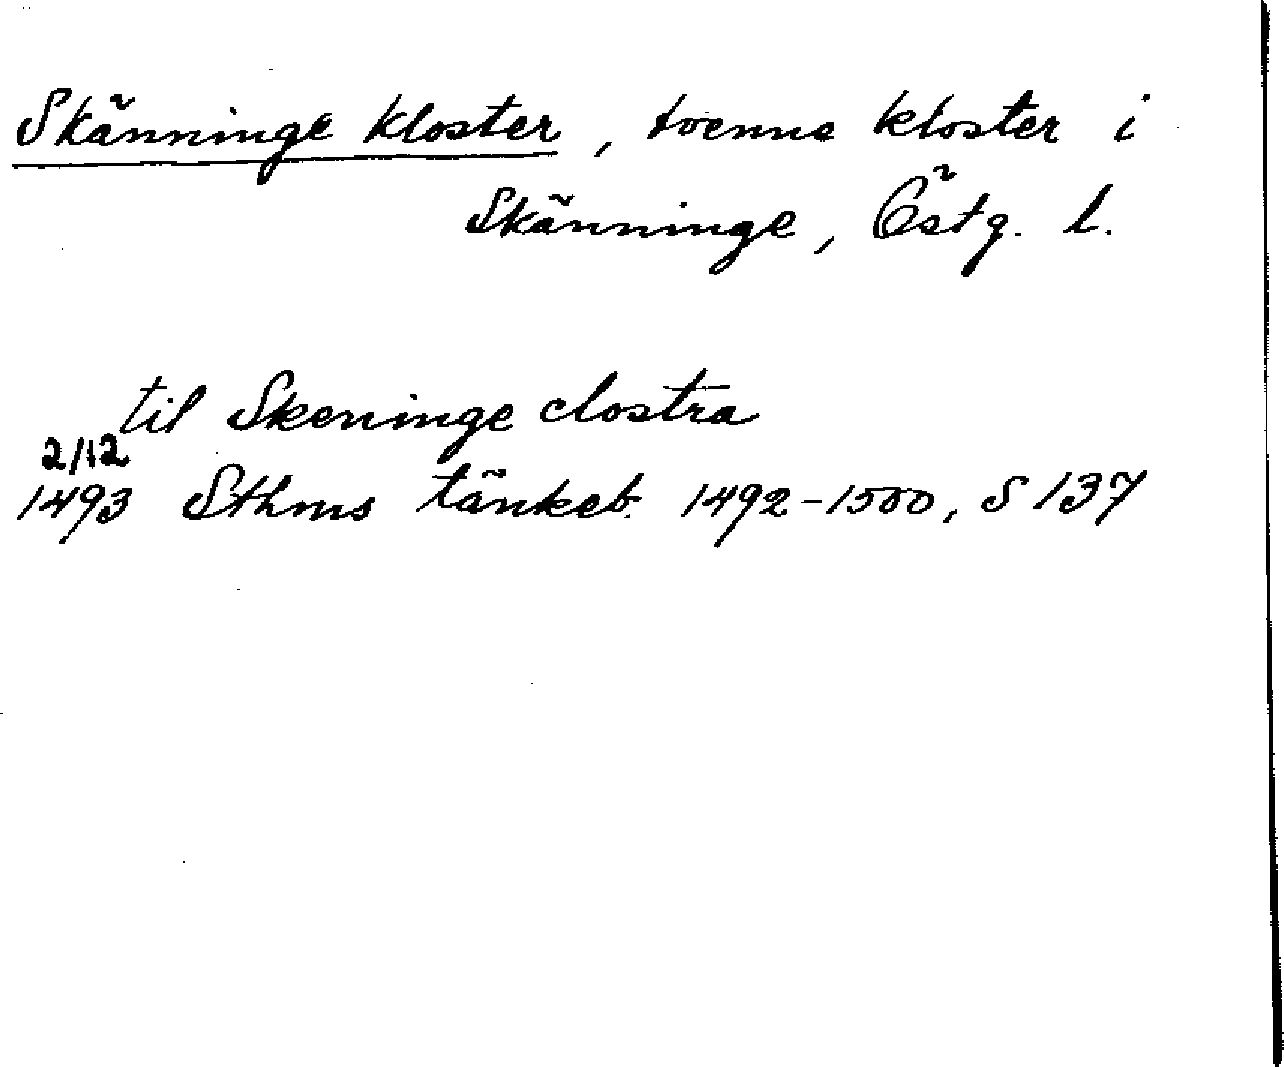 Skänninge kloster, tvenne kloster i
Skänninge, Östg. l.
til Skeninge clostra
2/12
1493 Sthms tänkeb. 1492-1500, S 137